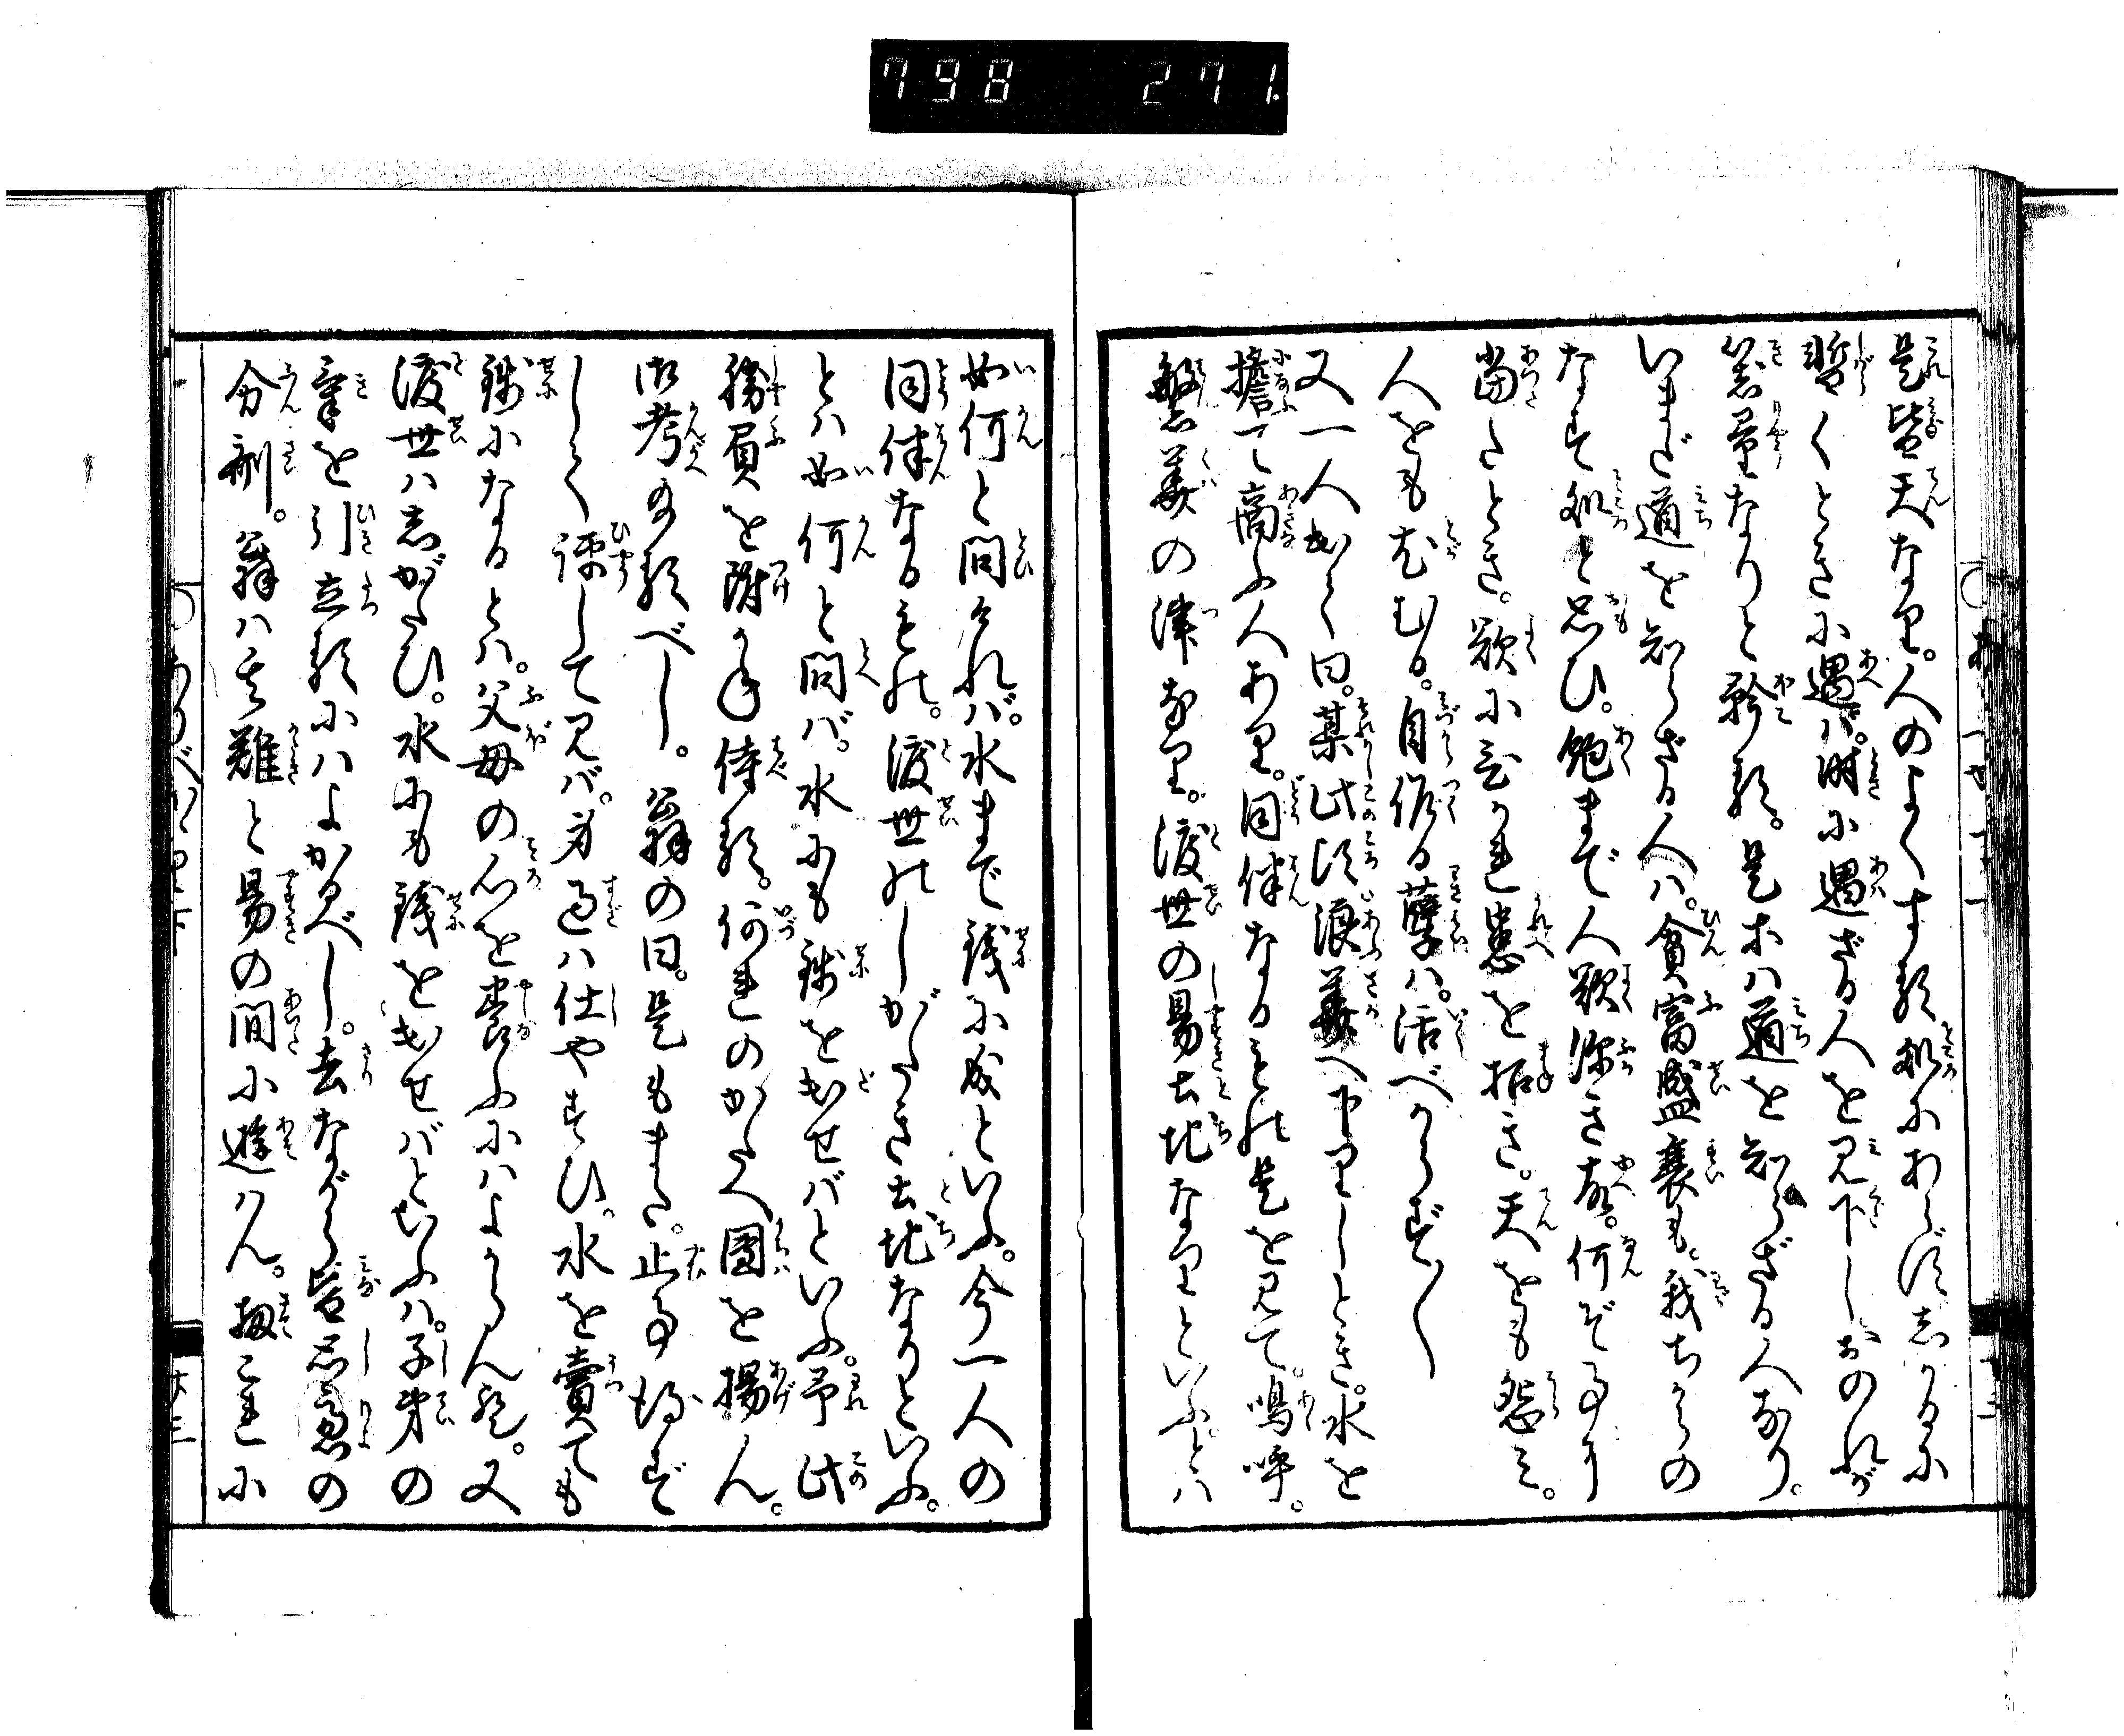 798 271.
是皆天なり。人のよくする処にあらず。志かるに
暫くときに遇ハ。時に遇ざる人を見下しおのれが
器量なりと矜る。是ホハ道を知らざる人なり。
いまだ道を知らざる人ハ。貧富盛衰も。我ちからの
なす処と思ひ。飽まで人欲深き故。何ぞ事に
当たとき。欲に ひかれ患を招き。天をも怨ミ。
人をもとがむる。自作る孽ハ。活べからず〱
又一人出て曰。某此頃浪華へ下りしとき。水を
擔て商ふ人あり。同伴なるもの是を見て。嗚呼。
繁華の津なり。渡世の易土地なりといふとハ
如何と問けれバ。水まで銭に成といふ。今一人の
同伴なるもの。渡世のしがたき土地なりといふ。
とハ如何と問バ。水にも銭を出せバといふ。予此
勝負を附かね侍る。何れのかたへ團を揚ん。
御考る べし。翁の曰。是もまた。止事得ず
しく評して見バ。身過ハ仕やすひ。水を賣ても
銭になるとハ。父母の心を養ふにハよからん歟。又
渡世ハ志がたひ。水にも銭を出せバといふハ。子弟の
気を引立るにハよかるべし。去ながら皆思慮の
分別。翁ハ只難と易の間に遊ハん。扨これに